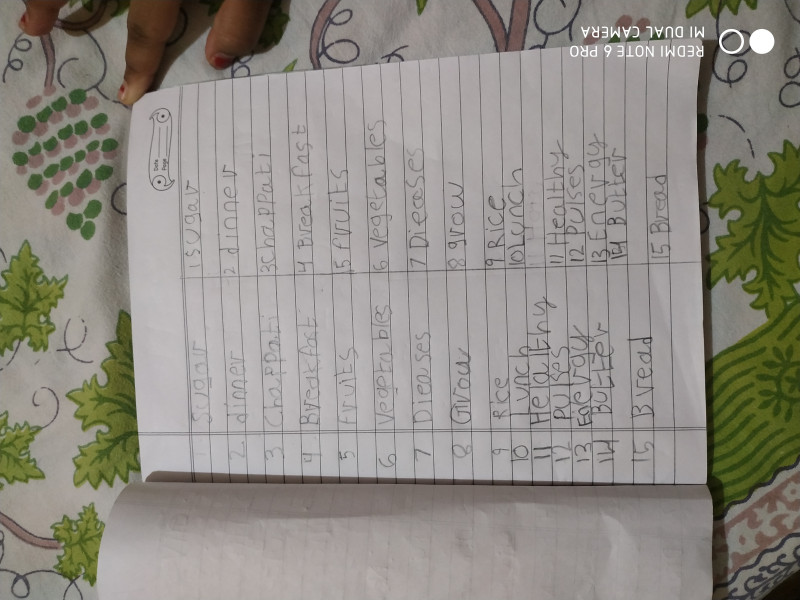 Date
Page
1 Sugar 1 Sugar
2. dinner 2 dinner
3 Chappati 3 Chappati
4 Breakfast 4 Breakfast
5 Fruits 5 fruits
6 Vegetables 6 Vegetables
7 Dieases 7 Dieases
8 Grow 8 grow
9 Rice 9 Rice
10 Lunch 10 Lunch
11 Healthy 11 Healthy
12 Pulses 12 Pulses
13 Energy 13 Energy
14 Butter 14 Butter
15 Bread 15 Bread
REDMI NOTE 6 PRO
MI DUAL CAMERA